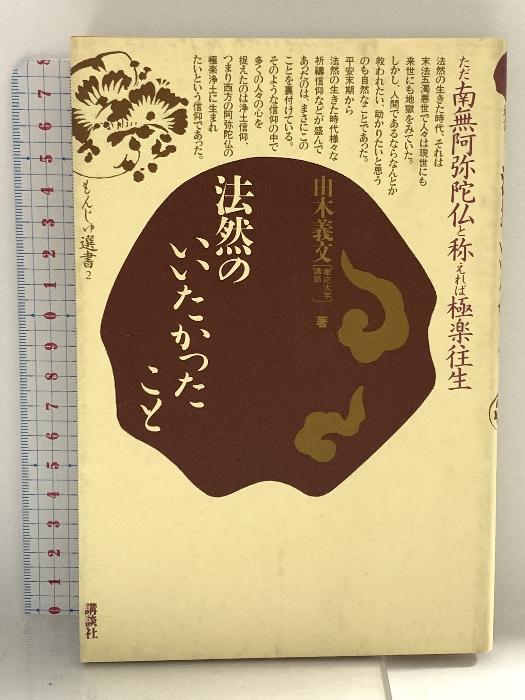 ただ南無阿弥陀仏と称えれば極楽往生
法然の生きた時代、それは
末法五濁悪世で人々は現世にも
来世にも地獄をみていた。
しかし、人間であるならなんとか
救われたい、助かりたいと思う
のも自然なことであった。
平安末期から
法然の生きた時代様々な
祈禱信仰などが盛んで
あったのは、まさにこの
ことを裏付けている。
そのような信仰の中で
多くの人々の心を
捉えたのは浄土信仰、
つまり西方の阿弥陀仏の
極楽浄土に生まれ
たいという信仰であった。
由木義文
[慶応大学
講師]
著
法然の
いいたかった
こと
もんじゅ選書2
講談社
7
6
5
4
3
2
1
0
9
8
7
6
5
4
3
2
1
0